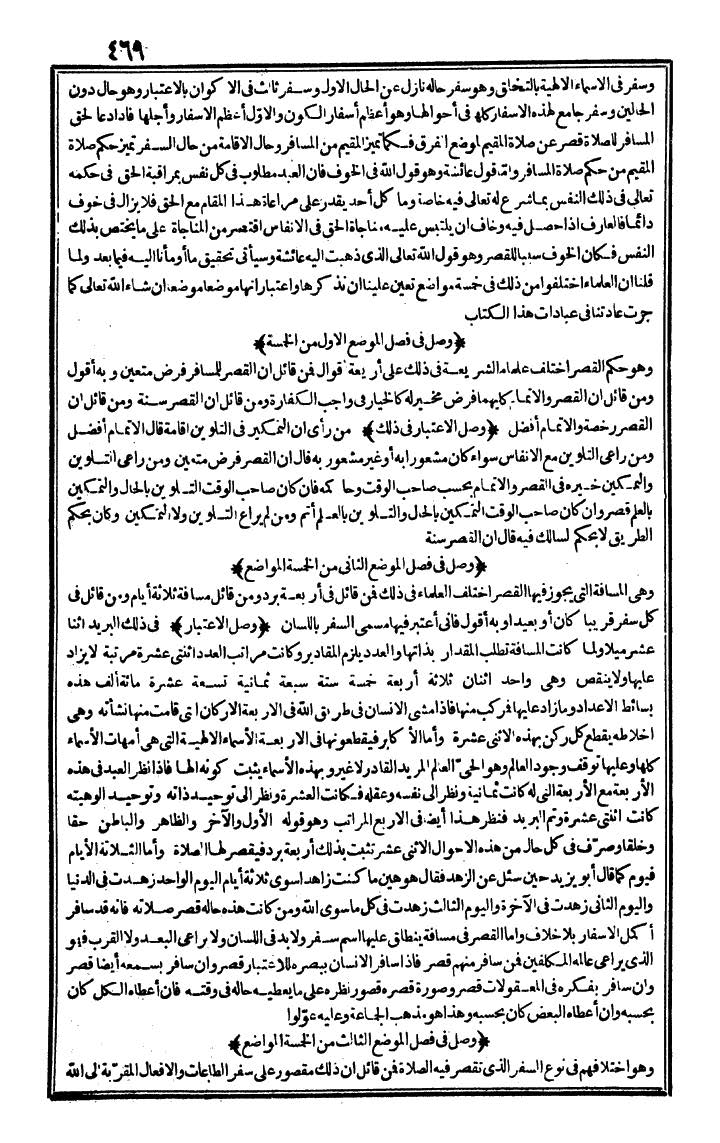 ٤٦٩
وسفر فى الاسماء الالهية بالتخلق وهو سفر حاله نازل عن الحال الاول وسفر ثالث فى الا كوان بالاعتبار وهو حال دون
الحالين وسفر جامع لهذه الاسفار كلها فى أحوالها وهو أعظم أسفار الكون والاوّل أعظم الاسفار وأجلها فاذا دعا الحق
المسافر للصلاة قصر عن صلاة المقيم لموضع الفرق فكما تميز المقيم من المسافر وحال الاقامة من حال السفر تميز حكم صلاة
المقيم من حكم صلاة المسافر وأما قول عائشة وهو قول الله فى الخوف فان العبد مطلوب فى كل نفس بمراقبة الحق فى حكمه
تعالى فى ذلك النفس بما شرع له تعالى فيه خاصة وما كل أحد يقدر على مراعاة هذا المقام مع الحق فلا يزال فى خوف
دائما فالعارف اذا حصل فيه وخاف ان يلتبس عليه مناجاة الحق فى الانفاس اقتصر من المناجاة على ما يختص بذلك
النفس فكان الخوف سببا للقصر وهو قول الله تعالى الذى ذهبت اليه عائشة وسيأتى تحقيق ما أومأنا اليه فيما بعد ولما
قلنا ان العلماء اختلفوا من ذلك فى خمسة مواضع تعين علينا ان نذكرها واعتباراتها موضعا موضعا ان شاء الله تعالى كما
جرت عادتنا فى عبادات هذا الكتاب
﴿وصل فى فصل الموضع الاول من الخمسة﴾
وهو حكم القصر اختلف علماء الشريعة فى ذلك على أربعة أقوال فمن قائل ان القصر للمسافر فرض متعين وبه أقول
ومن قائل ان القصر والاتمام كليهما فرض مخير له كالخيار فى واجب الكفارة ومن قائل ان القصر سنة ومن قائل ان
القصر رخصة والاتمام أفضل ﴿وصل الاعتبار فى ذلك﴾ من رأى ان التمكين فى التلوين اقامة قال الاتمام أفضل
ومن راعى التلوين مع الانفاس سواء كان مشعورا به أو غير مشعور به قال ان القصر فرض متعين ومن راعى التلوين
والتمكين خيره فى القصر والاتمام بحسب صاحب الوقت وحاكمه فان كان صاحب الوقت التلوين بالحال والتمكين
بالعلم قصر وان كان صاحب الوقت التمكين بالحال والتلوين بالعلم أتم ومن لم يراع التلوين ولا التمكين وكان بحكم
الطريق لا بحكم لسالك فيه قال ان القصر سنة
﴿وصل فى فصل الموضع الثانى من الخمسة المواضع﴾
وهى المسافة التى يجوز فيها القصر اختلف العلماء فى ذلك فمن قائل فى أربعة برد ومن قائل مسافة ثلاثة أيام ومن قائل فى
كل سفر قريبا كان أو بعيدا وبه أقول فانى أعتبر فيها مسمى السفر باللسان ﴿وصل الاعتبار﴾ فى ذلك البريد اثنا
عشر ميلا ولما كانت المسافة تطلب المقدار بذاتها والعدد يلزم المقادير وكانت مراتب العدد اثنتى عشرة مرتبة لا يزاد
عليها ولا ينقص وهى واحد اثنان ثلاثة أربعة خمسة ستة سبعة ثمانية تسعة عشرة مائة ألف هذه
بسائط الاعداد وما زاد عليها فمركب منها فاذا مشى الانسان فى طريق الله فى الاربعة الاركان التى قامت منها نشأته وهى
اخلاطه يقطع كل ركن بهذه الاثنى عشرة وأما الأكابر فيقطعونها فى الاربعة الأسماء الالهية التى هى أمهات الأسماء
كلها وعليها توقف وجود العالم وهو الحىّ العالم المريد القادر لا غير وبهذه الأسماء يثبت كونه الها فاذا نظر العبد فى هذه
الأربعة مع الأربعة التى له كانت ثمانية ونظر الى نفسه وعقله فكانت العشرة ونظر الى توحيد ذاته وتوحيد الوهيته
كانت اثنتى عشرة وتم البريد فنظر هذا أيضا فى الاربع المراتب وهو قوله الأول والآخر والظاهر والباطن حقا
وخلقا وصرّف فى كل حال من هذه الاحوال الاثنى عشر تثبت بذلك أربعة برد فيقصر لها الصلاة وأما الثلاثة الأيام
فيوم كما قال أبو يزيد حين سئل عن الزهد فقال هو هين ما كنت زاهدا سوى ثلاثة أيام اليوم الواحد زهدت فى الدنيا
واليوم الثانى زهدت فى الآخرة واليوم الثالث زهدت فى كل ما سوى الله ومن كانت هذه حاله قصر صلاته فانه قد سافر
أكمل الاسفار بلا خلاف واما القصر فى مسافة ينطلق عليها اسم سفر ولا بد فى اللسان ولا يراعى البعد ولا القرب فهو
الذى يراعى عالمه المكلفين فمن سافر منهم قصر فاذا سافر الانسان ببصره للاعتبار قصر وان سافر بسمعه أيضا قصر
وان سافر بفكره فى المعقولات قصر وصورة قصره قصور نظره على ما يعطيه حاله فى وقته فان أعطاه الكل كان
بحسبه وان أعطاه البعض كان بحسبه وهذا هو مذهب الجماعة وعليه عوّلوا
﴿وصل فى فصل الموضع الثالث من الخمسة المواضع﴾
وهو اختلافهم فى نوع السفر الذى تقصر فيه الصلاة فمن قائل ان ذلك مقصور على سفر الطاعات والافعال المقرّبة الى الله